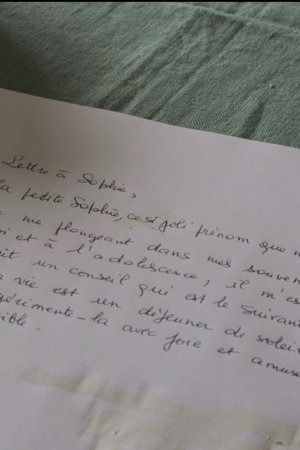 Lettre à Sophie,
la petite Sophie, ce si joli prénom que
me plongeant dans mes souven
et à l'adolescence, il m'es
un conseil qui est le suivant
vie est un déjeuner de soleil
périmente-la avec joie et amuse
ible.